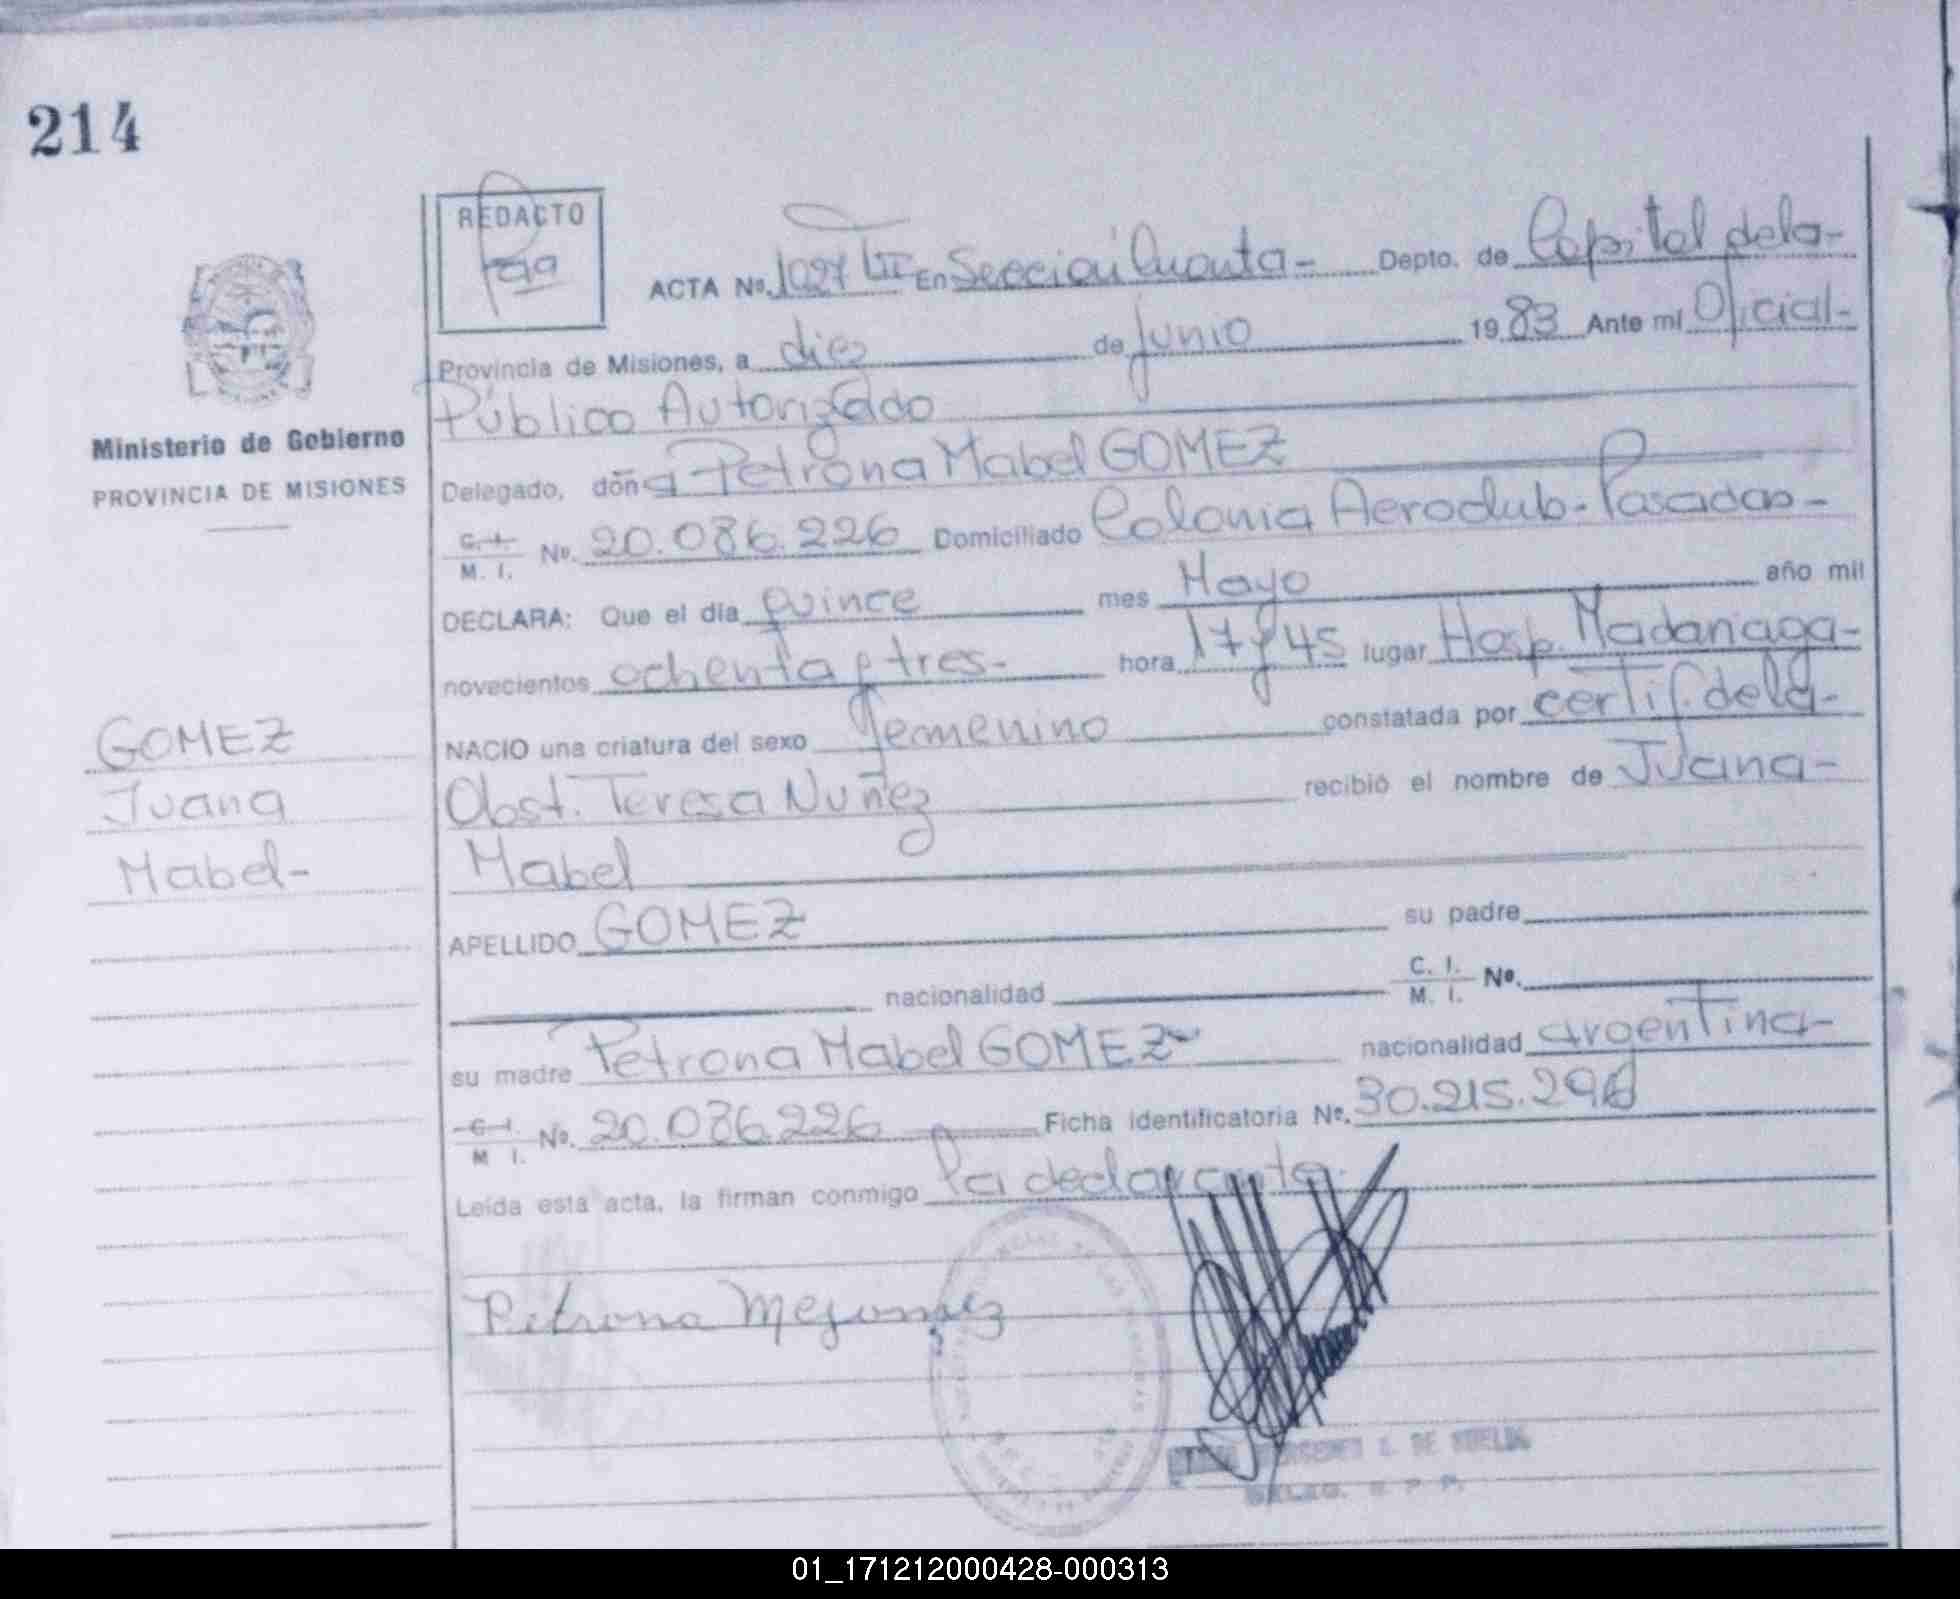 214
REDACTO
ACTA Nº. 1027 TII En Sección Cuarta- Depto. de Capital de la-
Provincia de Misiones, a diez de junio 1983 Ante mi Oficial-
Público Autorizado
Ministerio de Gobierno
PROVINCIA DE MISIONES
Delegado, doña Petrona Mabel GOMEZ
C. I. M. I. Nº. 20.086.226 Domiciliado Colonia Aeroclub-Posadas-
DECLARA: Que el día quince mes Mayo año mil
novecientos ochenta y tres- hora 17 y 45 lugar Hosp. Madariaga-
NACIO una criatura del sexo femenino constatada por certif. de la-
Obst. Teresa Nuñez recibió el nombre de Juana-
Mabel
GOMEZ
Juana
Mabel-
APELLIDO GOMEZ su padre
nacionalidad C. I. M. I. Nº.
su madre Petrona Mabel GOMEZ nacionalidad argentina-
C. I. M. I. Nº. 20.086.226 Ficha identificatoria Nº. 30.215.296
Leída esta acta, la firman conmigo la declarante.
Petrona
DE
01_171212000428-000313